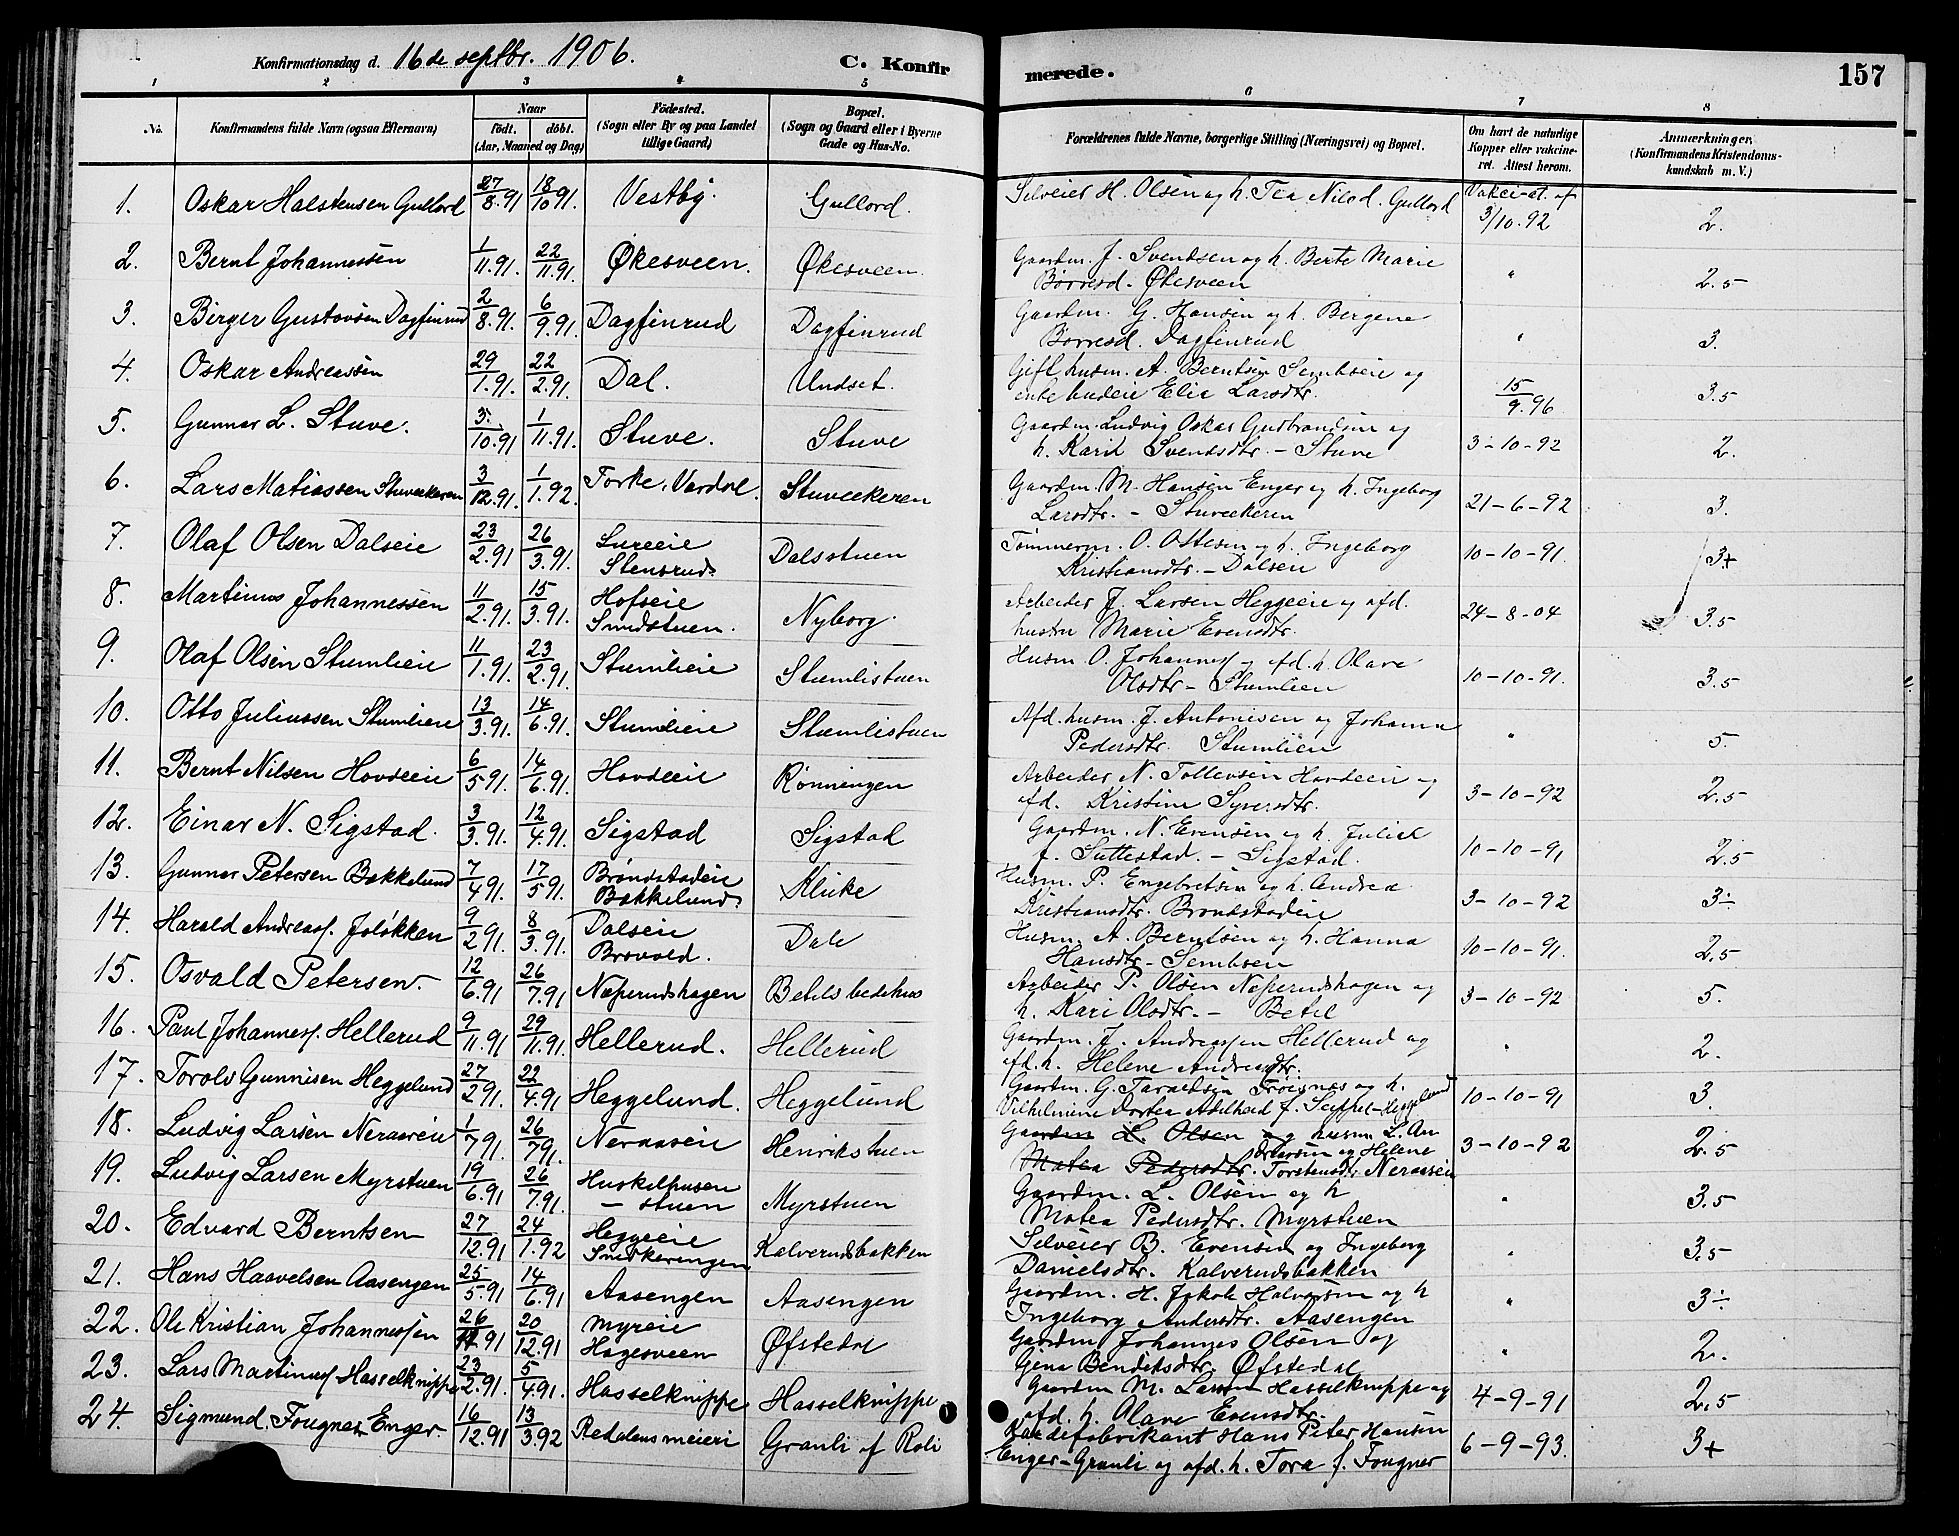 Konfirmationsdag d. 16de septbr. 1906.
C. Konfir
merede.
157
1 2 3 4 5 6 7 8
No.
Konfirmandens fulde Navn (ogsaa Efternavn)
Naar
födt. döbt.
(Aar, Maaned og Dag)
Födested.
(Sogn eller By og paa Landet
tillige Gaard)
Bopæl.
(Sogn og Gaard eller i Byerne
Gade og Hus-No.
Forældrenes fulde Navne, borgerlige Stilling (Næringsvei) og Bopæl.
Om havt de naturlige
Kopper eller vakcine-
ret. Attest herom.
Anmærkninger.
(Konfirmandens Kristendoms-
kundskab m. V.)
1. Oskar Halstensen Gullord 27/8.91 18/10 91. Vestby. Gullord. Selveier H. Olsen og h. Tea Nilsd. Gullord Vakci-at. af
3/10.92 2.
2. Bernt Johannessen 1/11.91. 22/11.91. Økesveen. Økesveen. Gaardm. J. Svendsen og h. Berte Marie
Børresd. Økesveen " 2.5
3. Birger Gustavsen Dagfinrud 2/8.91. 6/9.91. Dagfinrud Dagfinrud Gaardm. G. Hansen og h. Bergene
Børresd. Dagfinrud " 3.
4. Oskar Andreassen 29/1.91. 22/2.91. Dal. Undset. Gift husm. A. Berntsen Sembseie og
enke budeie Elia Larsdtr. 15/9.96 3.5
5. Gunnar L. Stuve. 3./10.91 1/11.91. Stuve. Stuve Gaardm. Ludvig Oskar Gudbrandsen og
h. Karit Svendsdtr. - Stuve 3-10-92 2.
6. Lars Matiassen Stuveekeren 3/12.91. 1/1.92. Torke, Vardal. Stuveekeren Gaardm. M. Hansen Enger og h. Ingeborg
Larsdtr. - Stuveekeren 21-6-92 3.
7. Olaf Olsen Dalseie 23/2.91 26/3.91. Lureeie
Stensrud. Dalsstuen Tømmerm. O. Ottesen og h. Ingeborg
Kristiansdtr. - Dalsen 10-10-91. 3+
8. Martinus Johannessen 11/2.91. 15/3.91. Hofseie
Smidstuen. Nyborg. Arbeider J. Larsen Heggeeie og afd.
hustru Marie Evensdtr. 24-8-04 3.5
9. Olaf Olsen Stumlieie 11/1.91. 23/2.91. Stumlieie Stumlistuen Husm. O. Johannes. og afd. h. Olave
Olsdtr - Stumlien 10-10-91. 3.5
10. Otto Juliussen Stumlieie 13/3.91. 14/6.91. Stumlieie Stumlistuen Afd. husm. J. Antonisen og Johanne
Pedersdtr. Stumlien " 5.
11. Bernt Nilsen Hovdeeie 6/5 91. 14/6.91. Hovdeeie Rønningen Arbeider N. Tollevsen Hovdeeie og
afd. Kristine Syversdtr. 3-10-92 2.5
12. Einar N. Sigstad. 3/3.91. 12/4.91. Sigstad Sigstad Gaardm. N. Evensen og h. Julie
f. Suttestad. - Sigstad. 10-10-91 2.5
13. Gunnar Petersen Bakkelund 7/4 91. 17/5 91. Brøndstadeie
Bakkelund. Klicke Husm. P. Engebretsen og h. Andrea
Kristiansdtr. Brøndstadeie 3-10-92 3÷
14. Harald Andreas. Joløkken 9/2 91. 8/3.91. Dalseie
Brovold. Dale Husm. A. Berntsen og h. Hanna
Hansdtr - Sembseie 10-10-91. 2.5
15. Osvald Petersen. 12/6.91 26/7.91 Næperudshagen Betels bedehus Arbeider P. Olsen Næperudshagen og
h. Kari Olsdtr. - Betel 3-10-92 5.
16. Paul Johannes. Hellerud 9/11.91 29/11.91. Hellerud. Hellerud Gaardm. J. Andreassen Hellerud og
afd. h. Helene Andreasdtr. " 2.
17. Torolv Gunnisen Heggelund 27/2 91. 22/4.91 Heggelund. Heggelund Gaardm. G. Taraldsen Frøisnes og h.
Vilhelmine Dortea Adelheid f. Seippel - Heggelund 10-10-91 3.
18. Ludvig Larsen Neraaseie 1/7 91. 26/7 91. Neraaseie Henrikstuen Gaardm L. Olsen og husm L. An
dersen og Helene
Matea Pedersdtr. Torstensdtr Neraaseie 3-10-92 2.5
19. Ludvig Larsen Myrstuen 19/6.91 26/7.91. Huskelhusen
- stuen Myrstuen Gaardm. L. Olsen og h
Matea Pedersdtr. Myrstuen " 3.5
20. Edvard Berntsen 27/12.91 24/1.92 Heggeeie
Smedkeringen Kalverudsbakken Selveier B. Evensen og Ingeborg
Danielsdtr. Kalverudsbakken " 3.5
21. Hans Hasvelsen Aasengen 25/5.91 14/6.91 Aasengen Aasengen Gaardm. H. Jakob Halvorsen og h
Ingeborg Andersdtr. Aasengen " 3÷
22. Ole Kristian Johannessen 26/11.91 20/12.91 Myreie
Hagesveen Øfstedal Gaardm Johannes Olsen og
Gina Bendiksdtr. Øfstedal " 2.
23. Lars Martinus. Hasselknippe 23/2.91. 5/4.91. Hasselknippe Hasselknippe Gaardm M. Larsen Hasselknippe og
afd. h. Olave Evensdtr. 4-9-91 2.5
24. Sigmund Fougner Enger. 16/12.91 13/3.92 Redalens meieri Granli af Roli Kardefabrikant Hans Peter Hansen
Enger - Granli og afd. h. Tora f. Fougner 6-9-93. 3+